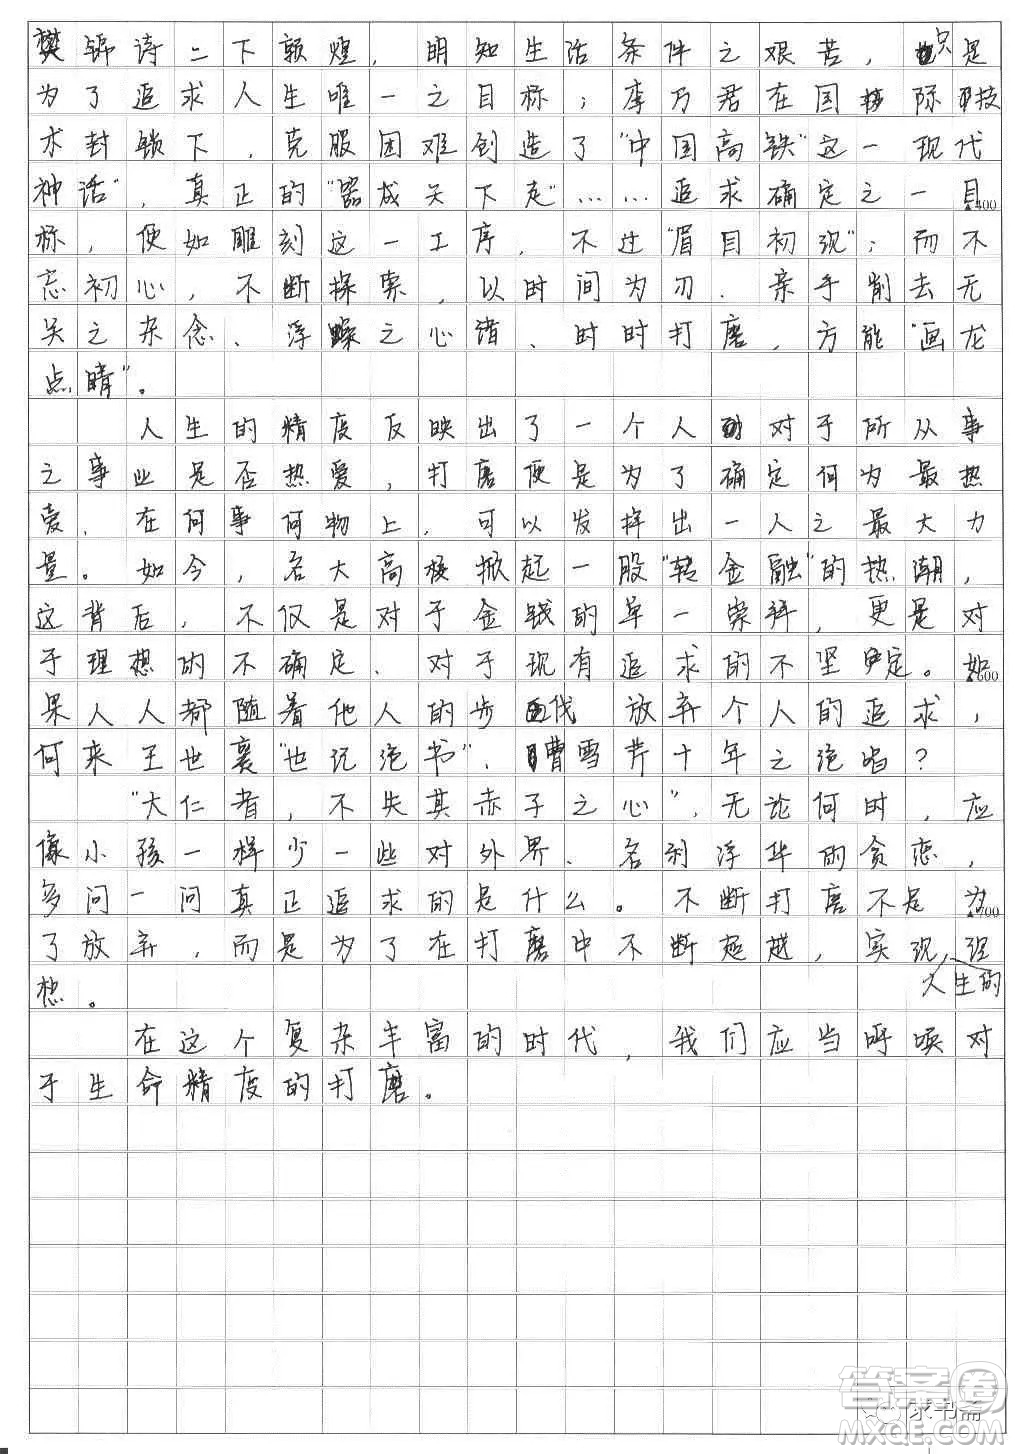 樊锦诗二下敦煌，明知生活条件之艰苦，只是
为了追求人生唯一之目标；李乃君在国际技
术封锁下，克服困难创造了“中国高铁”这一现代
神话”，真正的“器成天下走”……追求确定之一目
▲400
标，便如雕刻这一工序，不过“眉目初现”；而不
忘初心，不断探索，以时间为刃，亲手削去无
关之杂念、浮躁之心绪、时时打磨，方能“画龙
点睛”。
人生的精度反映出了一个人对于所从事
之事业是否热爱，打磨便是为了确定何为最热
爱，在何事何物上，可以发挥出一人之最大力
量。如今，名大高校掀起一股“转金融”的热潮，
这背后，不仅是对于金钱的单一崇拜，更是对
于理想的不确定、对于现有追求的不坚定。如
▲600
果人人都随着他人的步伐 放弃个人的追求，
何来王世襄“世纪绝书”、曹雪芹十年之绝唱？
“大仁者，不失其赤子之心”，无论何时，应
像小孩一样少一些对外界、名利浮华的贪恋，
多问一问真正追求的是什么。不断打磨不是为
▲700
了放弃，而是为了在打磨中不断超越，实现理
人生的
想。
在这个复杂丰富的时代，我们应当呼唤对
于生命精度的打磨。
答案圈
求书斋
MXQE.COM